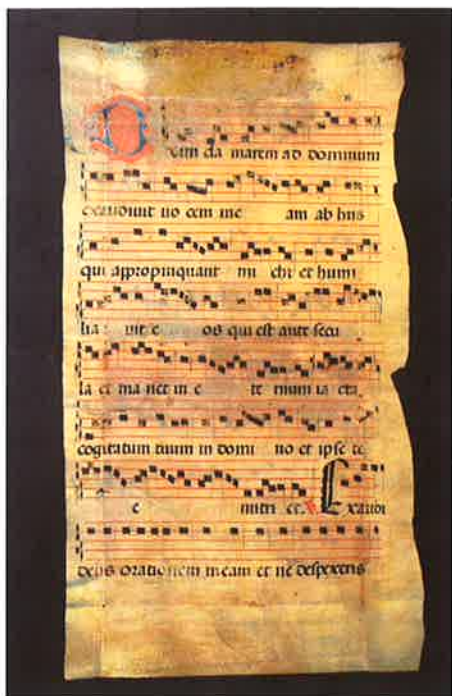 Dum cla marem ad dominum
exaudivit uo cem me am ab hiis
qui appropinquant mi chi et humi
lia vit e os qui est ante secu
la et ma net in e ter num ia cta
cogitatum tuum in domi no et ipse te
e nutri et. Exaudi
deus orationem meam et ne despexeris